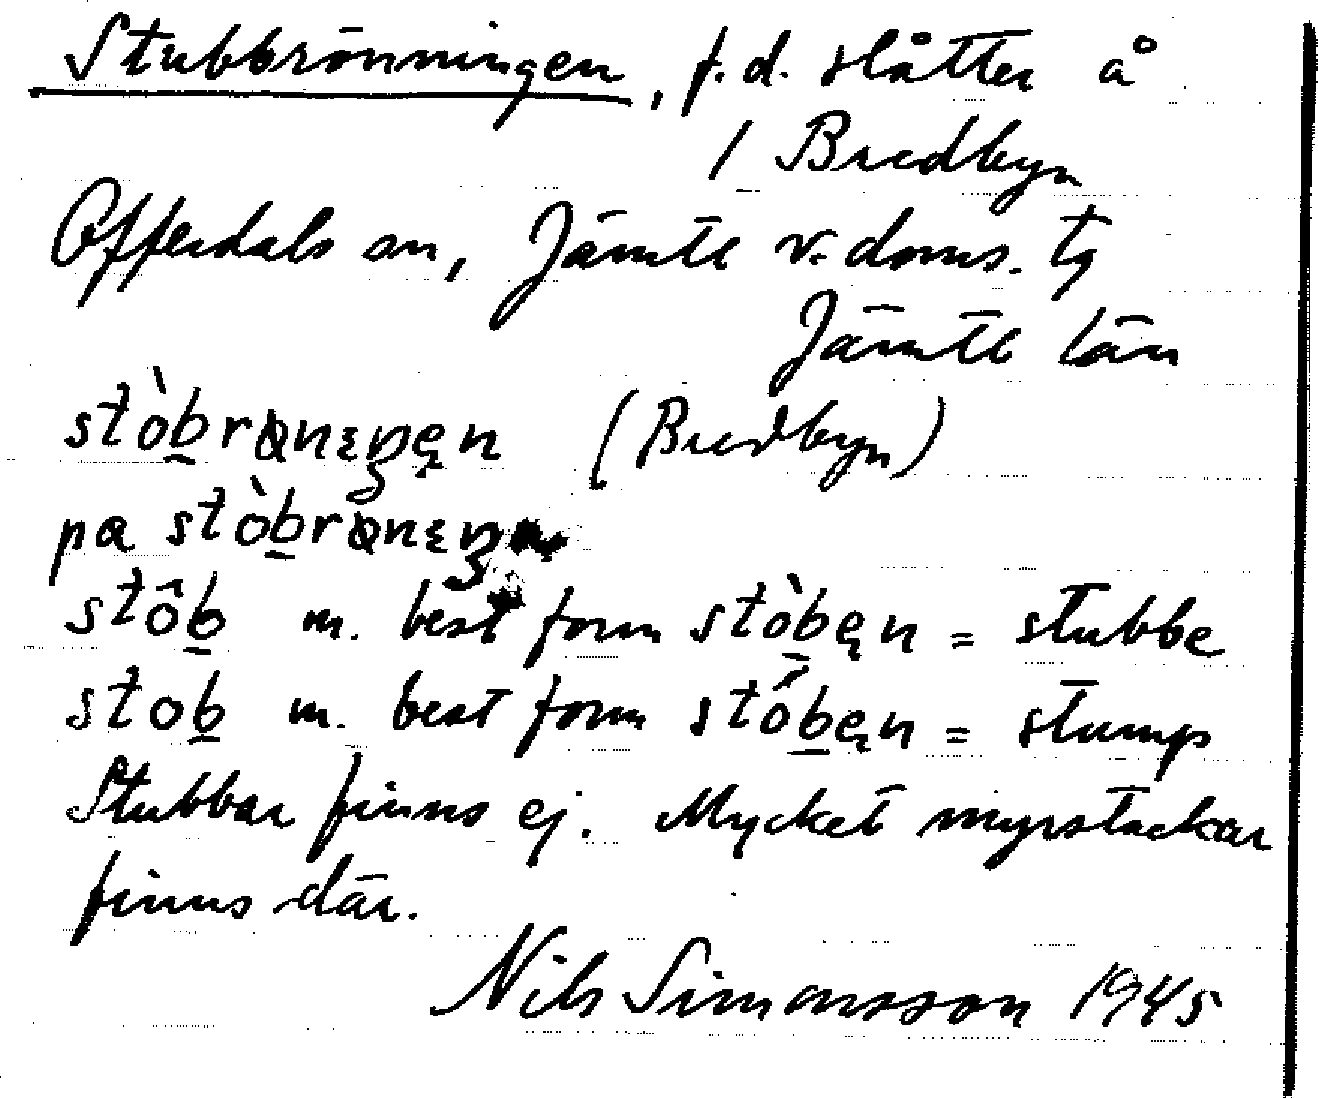 Stubbrönningen, f.d. slåtter å
/ Bredbyn
Offerdals sn, Jämtl v. doms. tg
Jämtl län
stòb̲rønıŋęn (Bredbyn)
pa stòb̲rønıŋ
stôb̲ m. best form stòb̲ęn = stubbe
stob̲ m. best form stób̲ęn = stump
Stubbar finns ej. Mycket myrstackar
finns där.
Nils Simonsson 1945